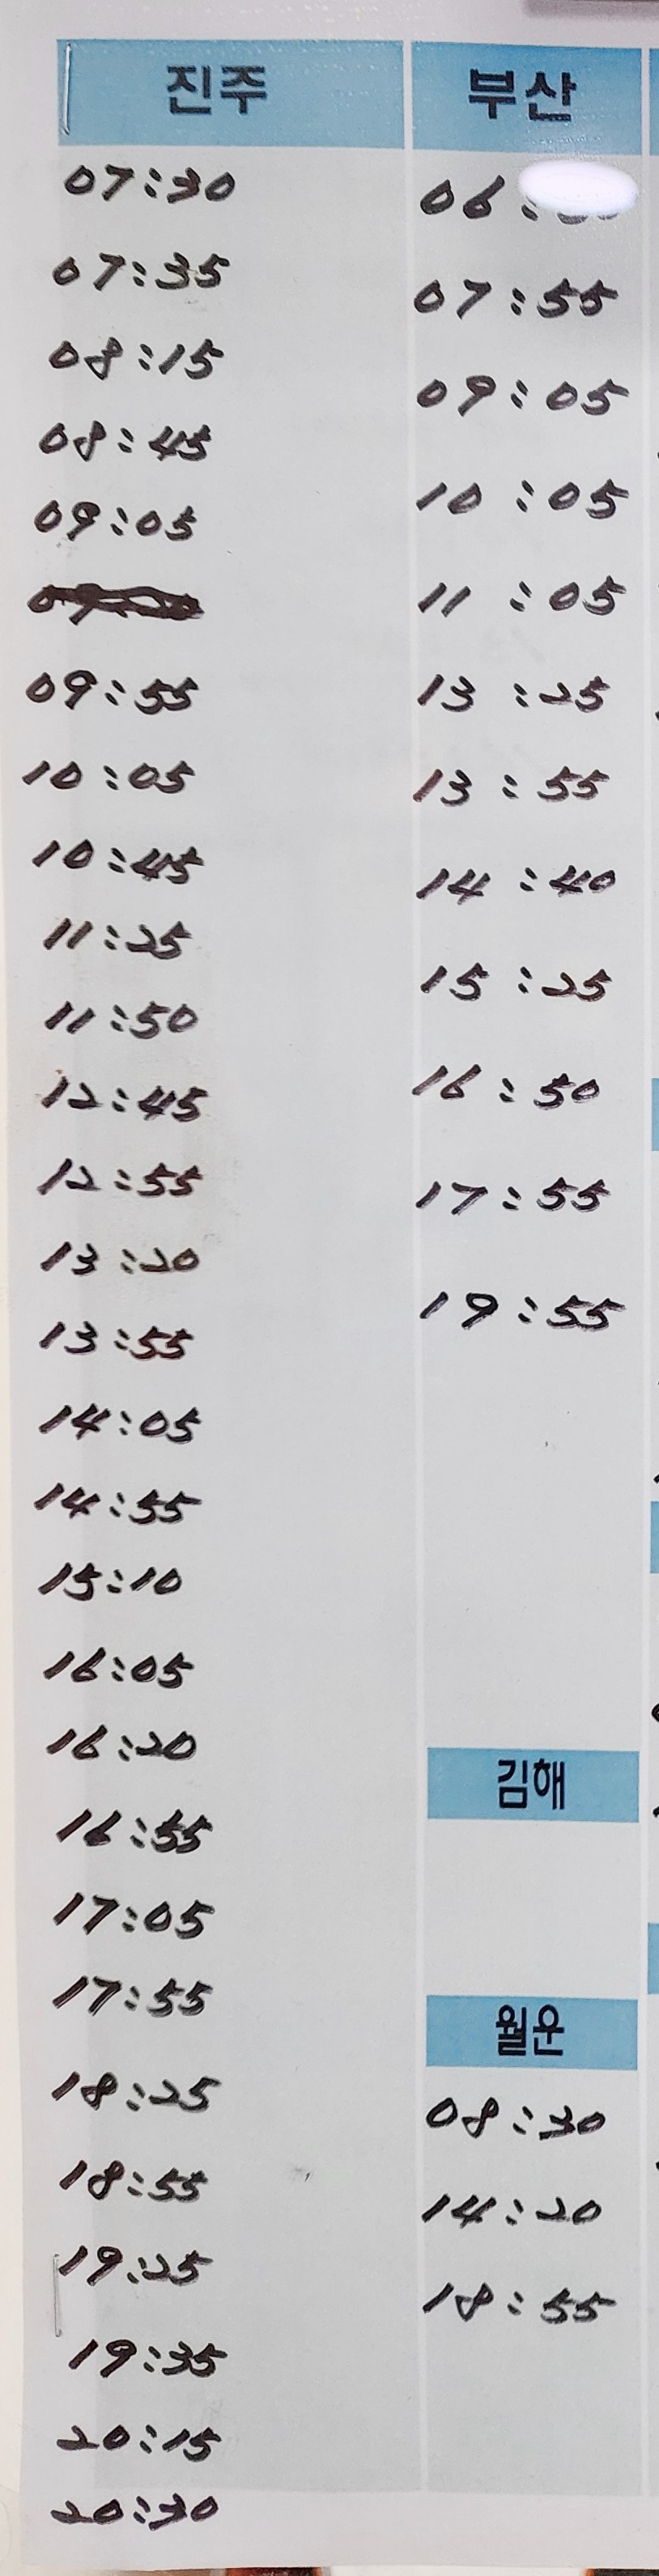 진주
07:30
07:35
08:15
08:45
09:05
09:55
10:05
10:45
11:25
11:50
12:45
12:55
13:20
13:55
14:05
14:55
15:10
16:05
16:20
16:55
17:05
17:55
18:25
18:55
19:25
19:35
20:15
20:30
부산
07:55
09:05
10:05
11:05
13:25
13:55
14:40
15:25
16:50
17:55
19:55
김해
월운
08:30
14:20
18:55